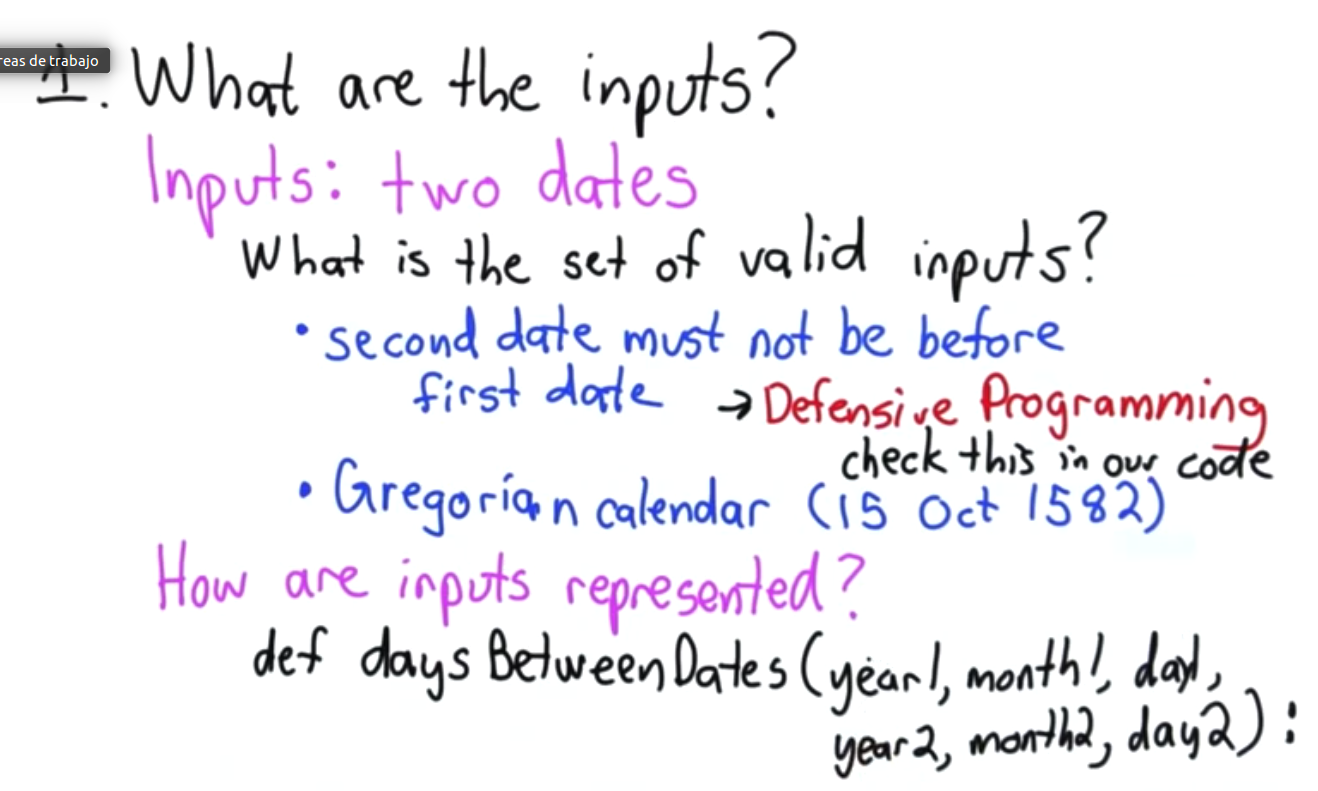 reas de trabajo
1. What are the inputs?
Inputs: two dates
What is the set of valid inputs?
• second date must not be before
first date → Defensive Programming
check this in our code
• Gregorian calendar (15 Oct 1582)
How are inputs represented?
def daysBetweenDates(year1, month1, day1,
year2, month2, day2):